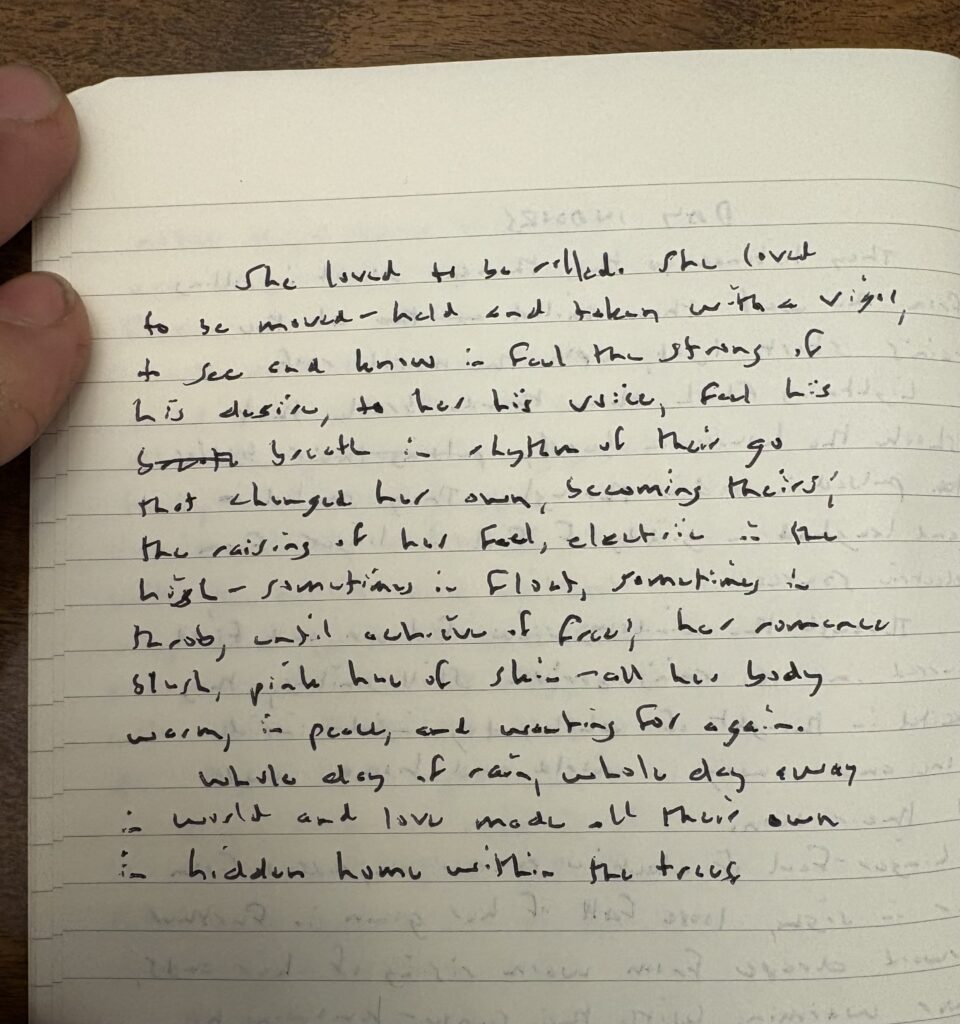 She loved to be rilled. She loved
to be moved – held and taken with a vigor,
to see and know in feel the strong of
his desire, to her his voice, feel his
breath in rhythm of their go
that changed her own, becoming theirs;
the raising of her feel, electric in the
high – sometimes in float, sometimes in
throb, until achieve of free; her romance
blush, pink hue of skin – all her body
warm, in peace, and wanting for again.
Whole day of rain, whole day away
in world and love made all their own
in hidden home within the trees